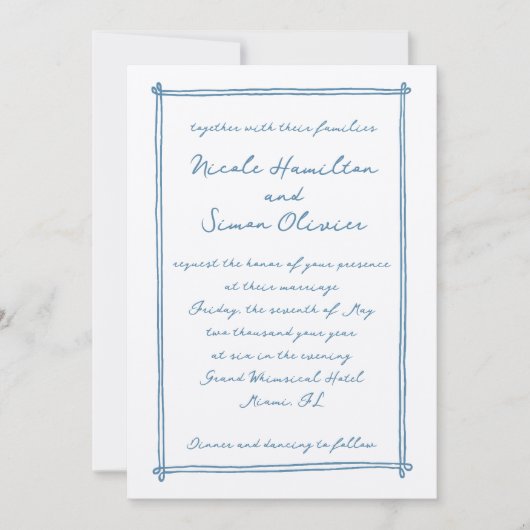 together with their families
Nicole Hamilton
and
Simon Olivier
request the honor of your presence
at their marriage
Friday, the seventh of May
two thousand your year
at six in the evening
Grand Whimsical Hotel
Miami, FL
Dinner and dancing to follow